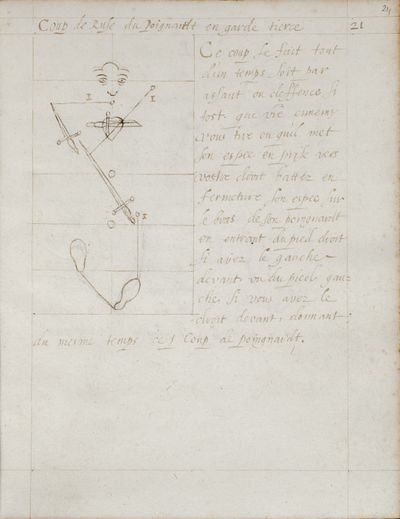 24
Coup de Ruse du Poignardt en garde tierce 21
Ce coup se fait tout
d'un temps soit par
assaut ou deffence si
tost que vre ennemy
vous tire ou quil met
son espee en prise vers
vostre dont battez en
fermeture son espee sur
le bras de son poignardt
en entrant du pied droit
si avez le gauche
devant, ou du pied gau-
che si vous avez le
droit devant, donnant
du mesme temps ce 1 Coup de poingnardt.
1
1
1